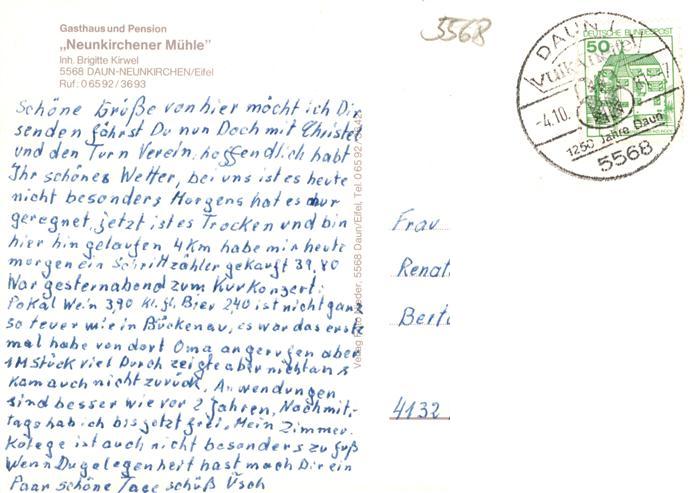 Gasthaus und Pension
„Neunkirchener Mühle"
Inh. Brigitte Kirwel
5568 DAUN-NEUNKIRCHEN/Eifel
Ruf: 06592/3693
5568
DEUTSCHE BUNDESPOST
50
DAUN
Vulkaneifel
-4.10.
1250 Jahre Daun
5568
Schöne Grüße von hier möcht ich Dir
senden fährst Du nun Doch mit Christel
und den Turn Verein, hoffendlich habt
Ihr schönes Wetter, bei uns ist es heute
nicht besonders Morgens hat es nur
geregnet, jetzt ist es Trocken und bin
hier hin gelaufen 4 Km habe mir heute
morgen ein Schrittzähler gekauft 39,80
War gesternabend zum Kurkonzert:
Pokal Wein 3,90 kl. gl. Bier 2,40 ist nicht ganz
so teuer wie in Bückenau, es war das erste
mal habe von dort Oma angerufen aber
1M Stück viel Durch zeigte aber nicht an
Kam auch nicht zurück, Anwendungen
sind besser wie vor 2 Jahren, Nachmit-
tags hab ich bis jetzt frei, Mein Zimmer
Kolege ist auch nicht besonders zu fuß
Wenn Du gelegenheit hast mach Dir ein
Paar schöne Tage schüß Üsch
Verlag Foto Nieder, 5568 Daun/Eifel, Tel. 06592/
Frau
Renat
Berto
4132